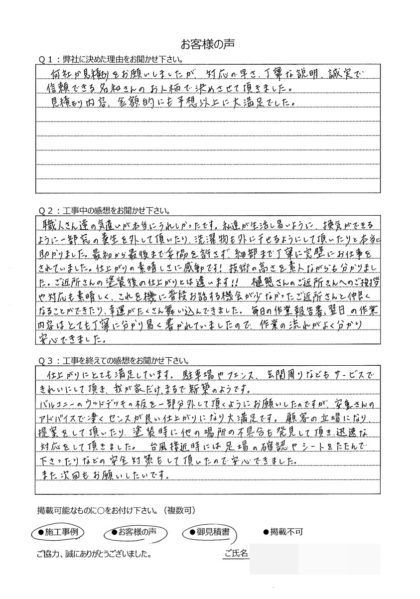 お客様の声
Q1：弊社に決めた理由をお聞かせ下さい。
何社か見積りをお願いしましたが、対応の早さ、丁寧な説明、誠実で
信頼できるさんのお人柄で決めさせて頂きました。
見積り内容、金額的にも予想以上に大満足でした。
Q2：工事中の感想をお聞かせ下さい。
職人さん達の気遣いが本当にうれしかったです。私達が生活し易いように、換気ができる
ように一部窓の養生を外して頂いたり、洗濯物を外に干せるようにして頂いたりと本当に
助かりました。最初から最後まで妥協を許さず細部まで丁寧に完璧にお仕事を
されていました。仕上がりの素晴しさに感動です！技術の高さを素人ながらも分かりまし
た。ご近所さんの塗装後の仕上がりとは違います!! さんのご近所さんへのご挨拶
や対応も素晴しく、これを機に普段お話する機会が少なかったご近所さんと仲良く
なることができたり、幸運がたくさん舞い込んできました。毎日の作業報告書、翌日の作業
内容はとても丁寧に分かり易く書かれていましたので、作業の流れがよく分かり
安心できました。
Q3：工事を終えての感想をお聞かせ下さい。
仕上がりにとても満足しています。駐車場やフェンス、玄関周りなどもサービスで
きれいにして頂き、我が家だけ、まるで新築のようです。
バルコニーのウッドデッキの板を一部分外して頂くようにお願いしたのですが、さんの
アドバイスで凄くセンスが良い仕上がりになり大満足です。顧客の立場になり、
提案をして頂いたり、塗装時に他の場所の不具合を発見して頂き、迅速な
対応をして頂きました。台風接近時には足場の確認やシートをたたんで
下さったりなどの安全対策をして頂いたので安心できました。
また次回もお願いしたいです。
掲載可能なものに○をお付け下さい。（複数可）
●施工事例 ●お客様の声 ●御見積書 ●掲載不可
ご協力、誠にありがとうございました。 ご氏名